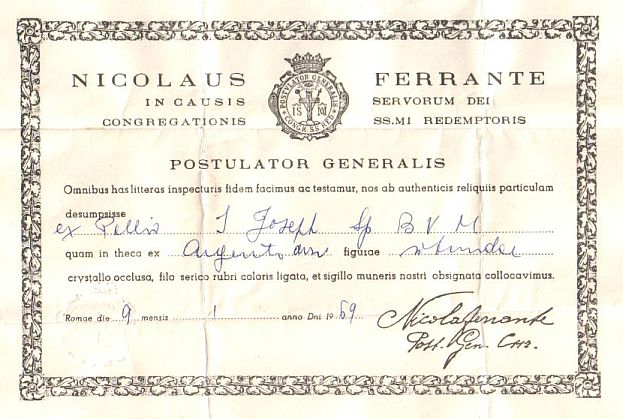 NICOLAUS FERRANTE
IN CAUSIS SERVORUM DEI
CONGREGATIONIS SS.MI REDEMPTORIS
POSTULATOR GENERALIS
Omnibus has litteras inspecturis fidem facimus ac testamur, nos ab authenticis reliquiis particulam
desumpsisse
ex Pallio S Joseph Sp B V M
quam in theca ex figurae rotundae
crystallo occlusa, filo serico rubri coloris ligata, et sigillo muneris nostri obsignata collocavimus.
Romae die 9 mensis 1 anno Dni 1969
Nicola Ferrante
Post. Gen.